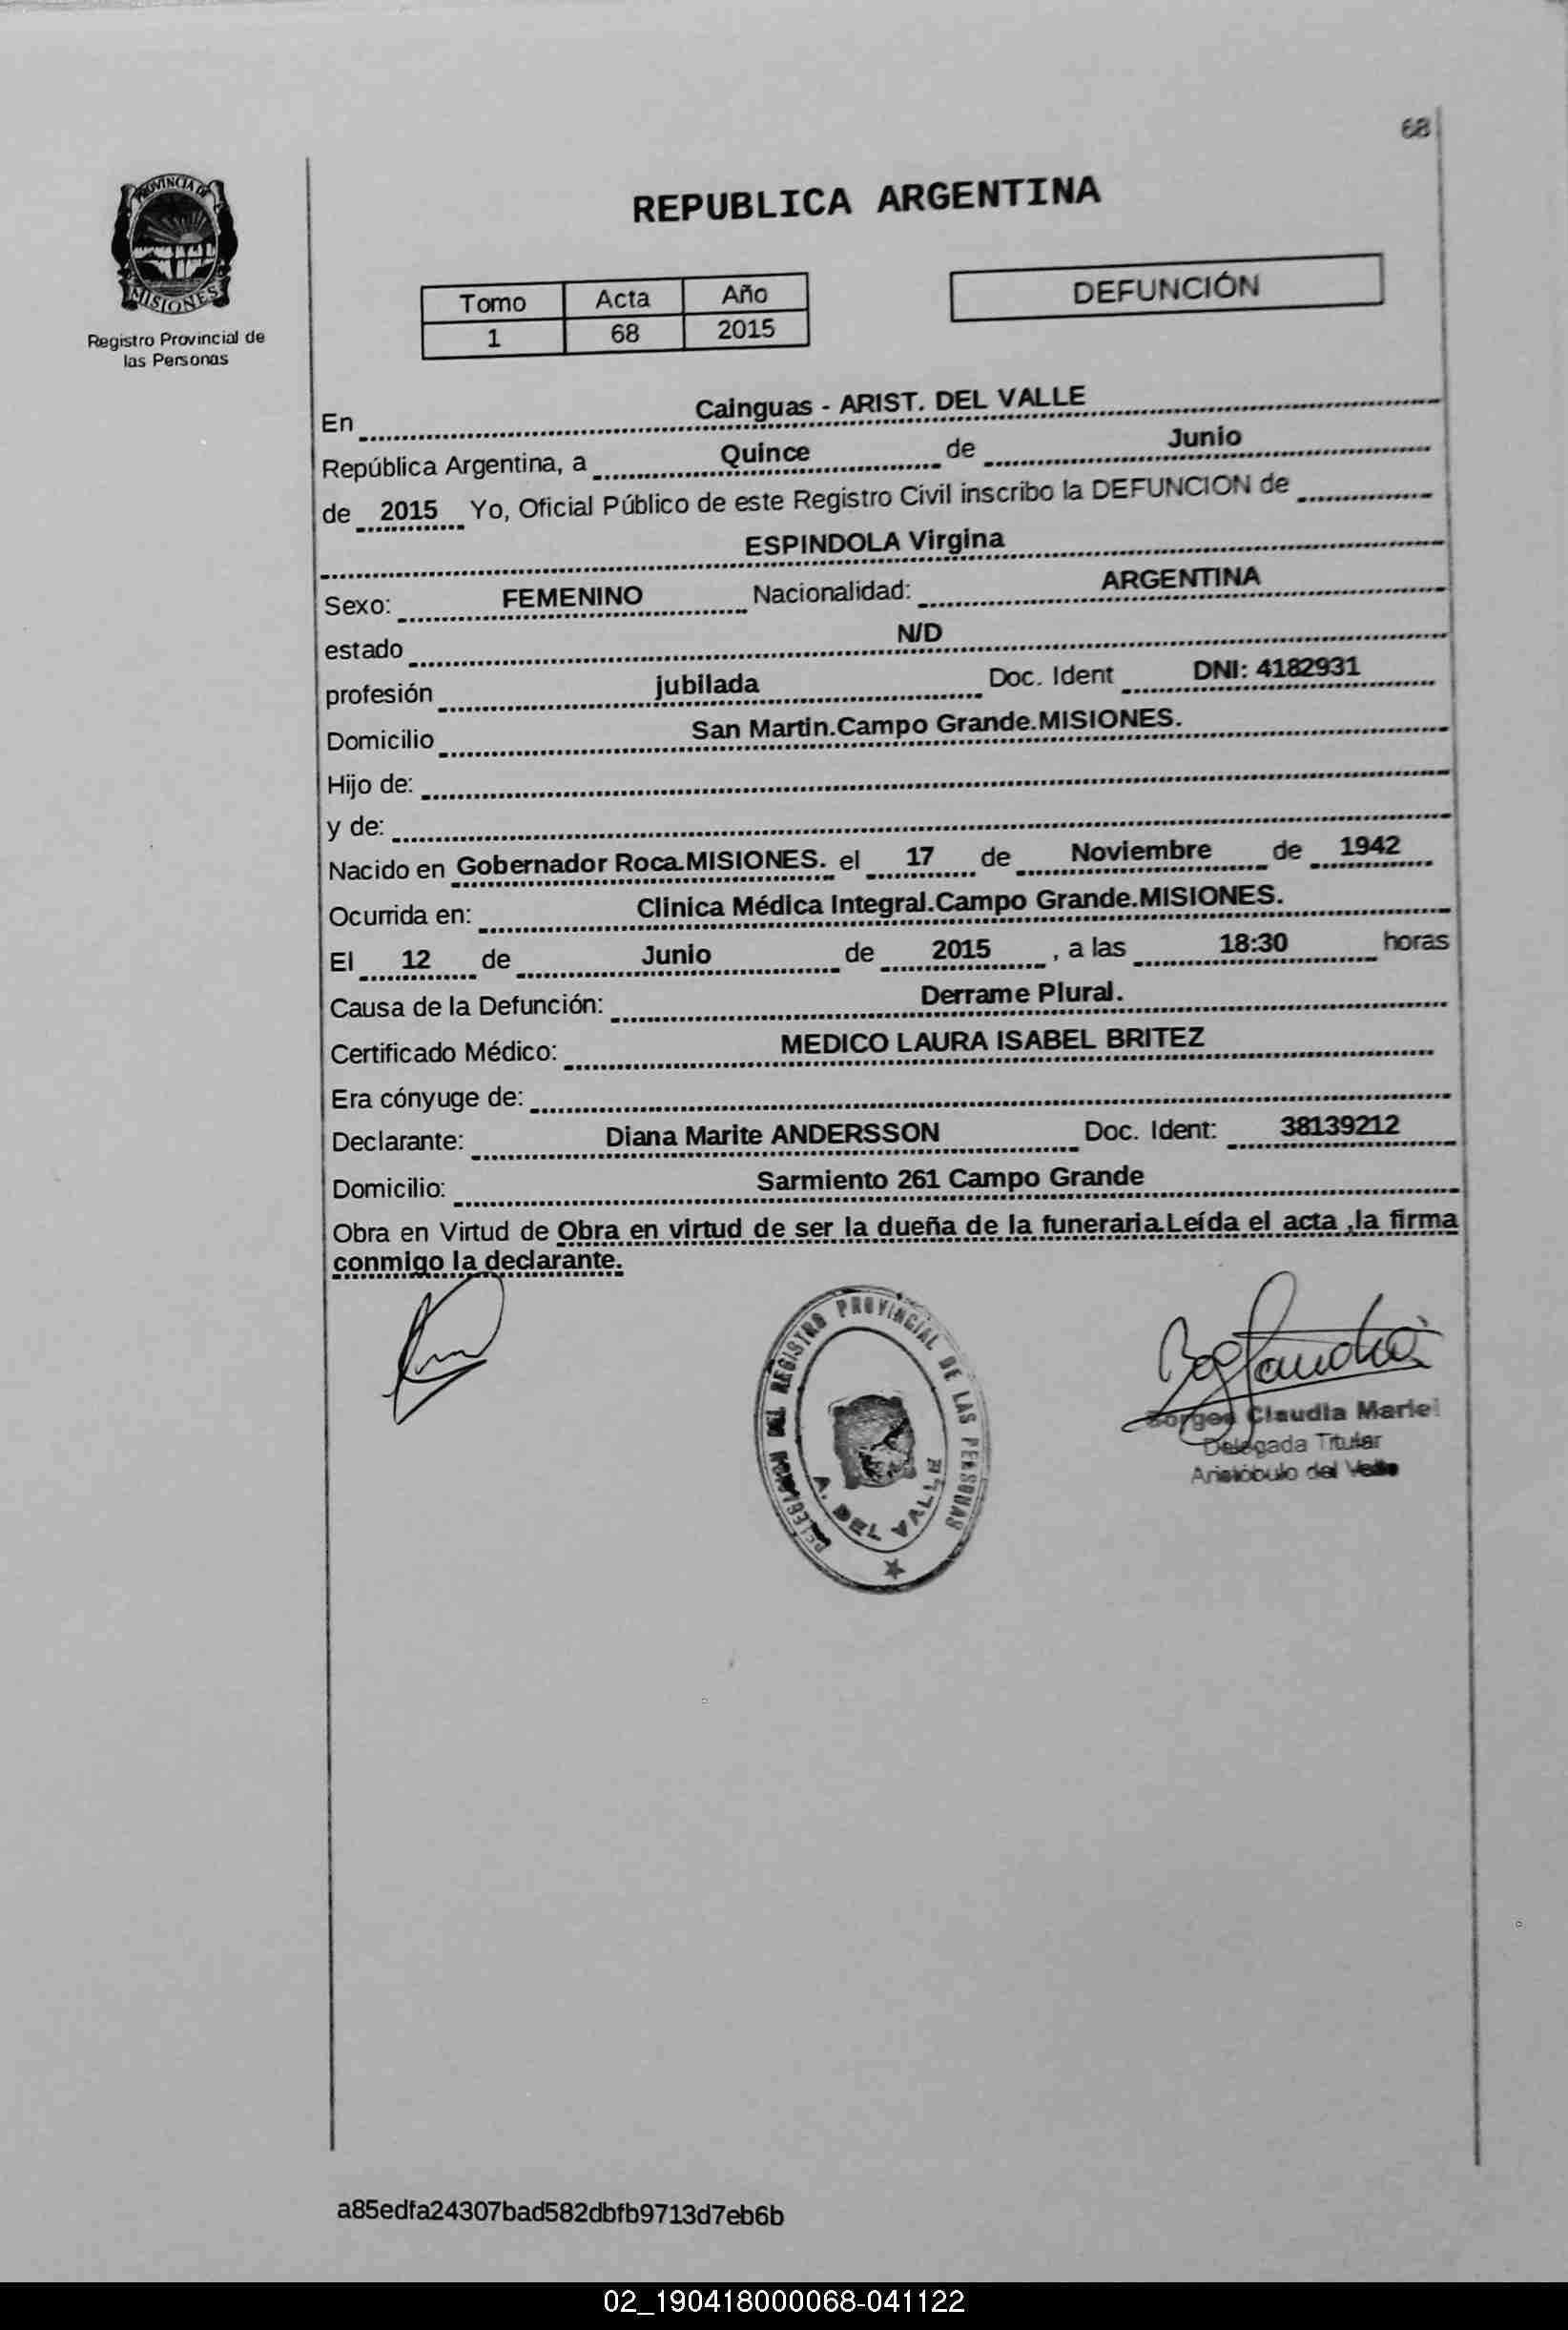 68
PROVINCIA DE
MISIONES
Registro Provincial de
las Personas
REPUBLICA ARGENTINA
Tomo Acta Año
1 68 2015
DEFUNCIÓN
En Cainguas - ARIST. DEL VALLE
República Argentina, a Quince de Junio
de 2015 Yo, Oficial Público de este Registro Civil inscribo la DEFUNCION de
ESPINDOLA Virgina
Sexo: FEMENINO Nacionalidad: ARGENTINA
estado N/D
profesión jubilada Doc. Ident DNI: 4182931
Domicilio San Martin.Campo Grande.MISIONES.
Hijo de:
y de:
Nacido en Gobernador Roca.MISIONES. el 17 de Noviembre de 1942
Ocurrida en: Clinica Médica Integral.Campo Grande.MISIONES.
El 12 de Junio de 2015 , a las 18:30 horas
Causa de la Defunción: Derrame Plural.
Certificado Médico: MEDICO LAURA ISABEL BRITEZ
Era cónyuge de:
Declarante: Diana Marite ANDERSSON Doc. Ident: 38139212
Domicilio: Sarmiento 261 Campo Grande
Obra en Virtud de Obra en virtud de ser la dueña de la funeraria.Leída el acta ,la firma
conmigo la declarante.
DELEGACION DEL REGISTRO PROVINCIAL DE LAS PERSONAS
A. DEL VALLE
Borges Claudia Mariel
Delegada Titular
Aristóbulo del Valle
a85edfa24307bad582dbfb9713d7eb6b
02_190418000068-041122